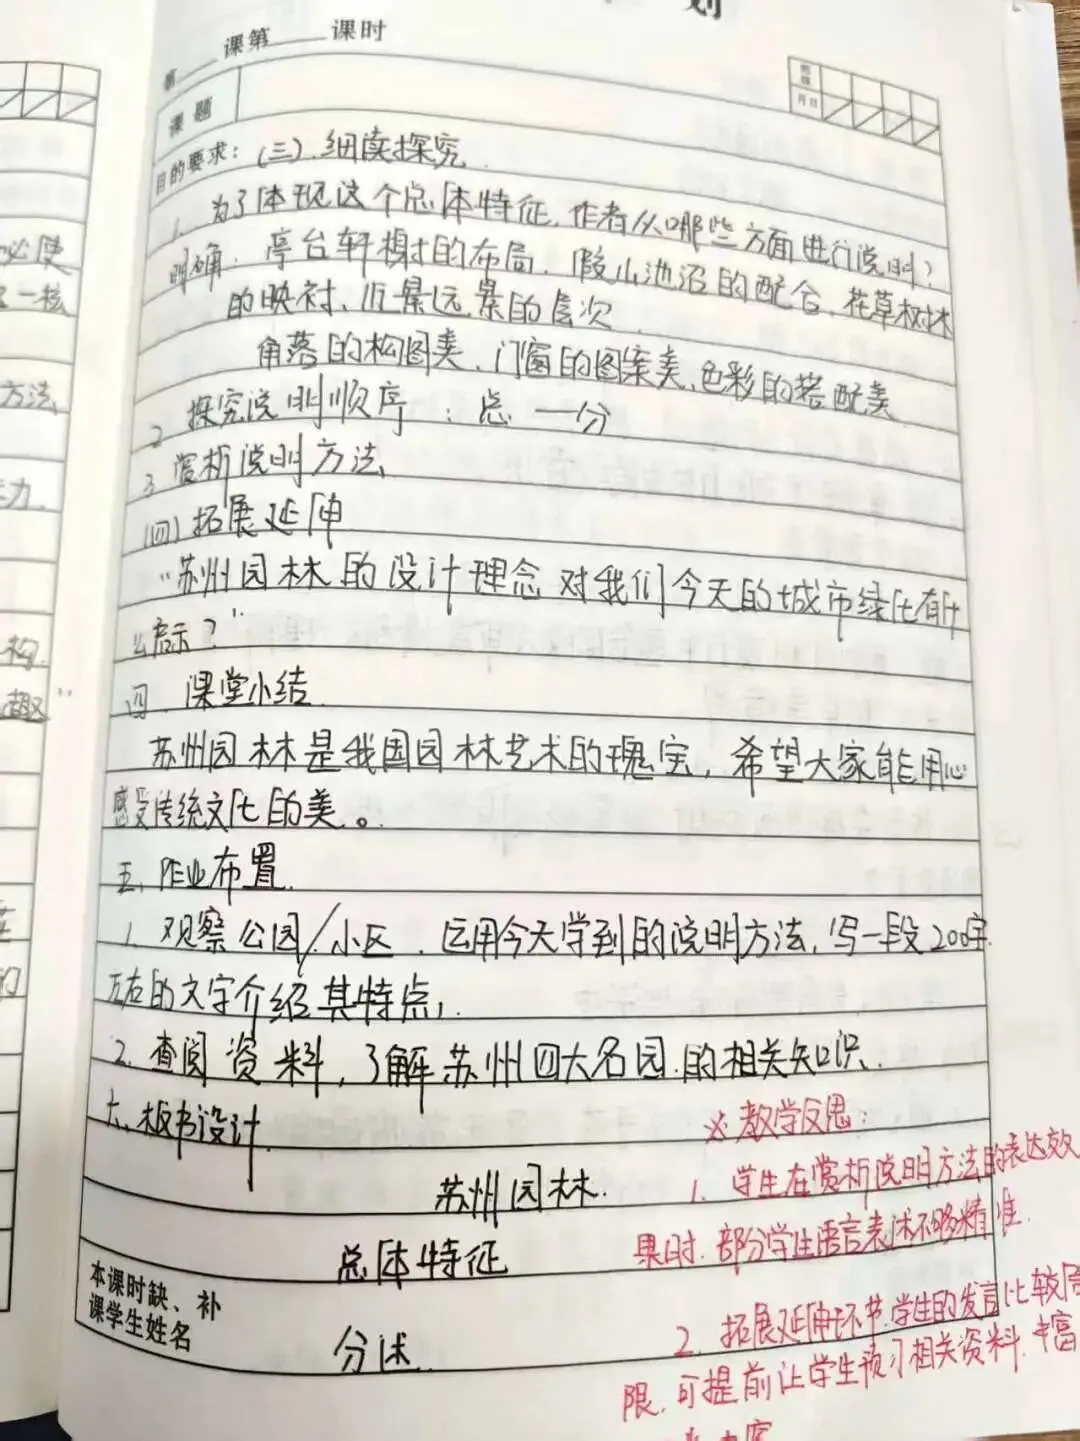 划
第 课第 课时
课题
班级
月日
目的要求：(三).细读探究.
1. 为了体现这个总体特征,作者从哪些方面进行说明?
明确. 亭台轩榭的布局、假山池沼的配合、花草树木
的映衬、近景远景的层次
角落的构图美、门窗的图案美、色彩的搭配美
2 探究说明顺序：总一分
3 赏析说明方法
(四)拓展延伸
"苏州园林的设计理念对我们今天的城市绿化有什
么启示?"
四、课堂小结
苏州园林是我国园林艺术的瑰宝,希望大家能用心
感受传统文化的美。
五、作业布置
1. 观察公园/小区,运用今天学到的说明方法,写一段200字
左右的文字介绍其特点,
2. 查阅资料,了解苏州四大名园的相关知识.
六、板书设计
苏州园林.
总体特征
分述.
本课时缺、补
课学生姓名
※教学反思:
1. 学生在赏析说明方法的表达效
果时,部分学生语言表述不够精准.
2. 拓展延伸环节,学生的发言比较局
限.可提前让学生预习相关资料,丰富
必使
一核
方法
力.
构.
趣"
的